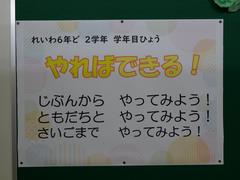 れいわ6年ど 2学年 学年目ひょう
やればできる!
じぶんから やってみよう!
ともだちと やってみよう!
さいごまで やってみよう!